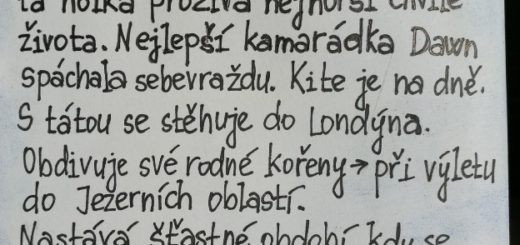 ta holka prožívá nejhorší chvíle
života. Nejlepší kamarádka Dawn
spáchala sebevraždu. Kite je na dně.
S tátou se stěhuje do Londýna.
Obdivuje své rodné kořeny → při výletu
do Jezerních oblastí.
Nastává šťastné období kdy se